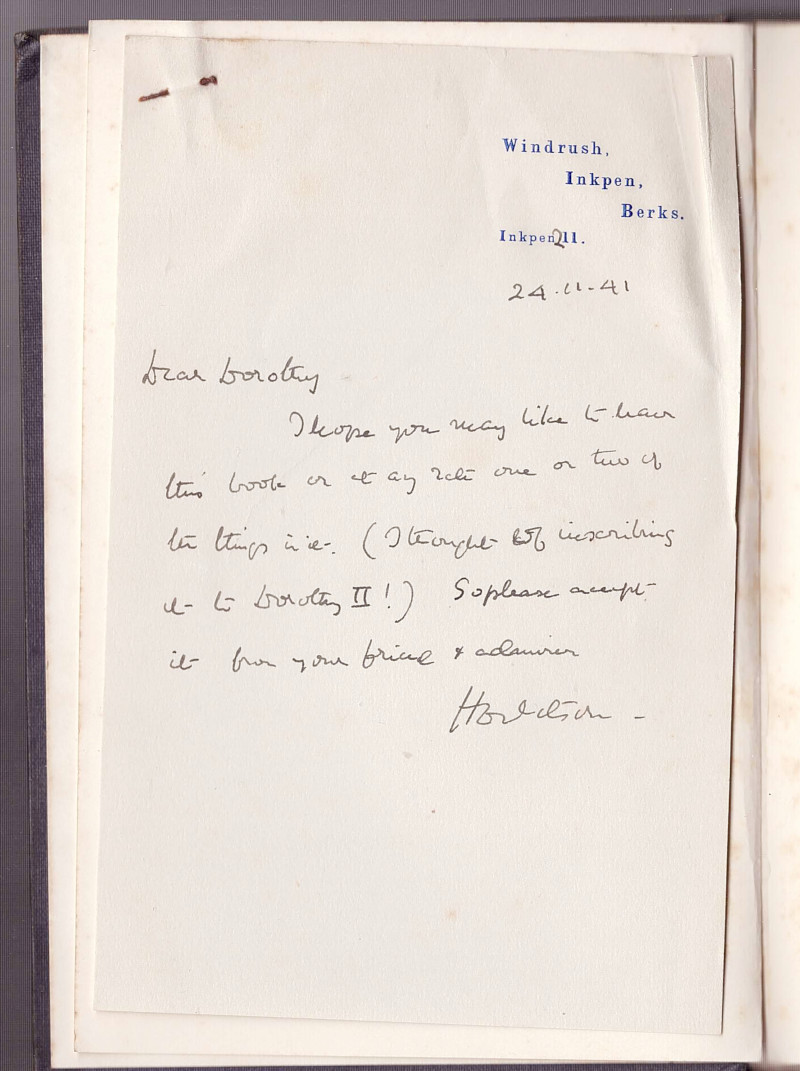 Windrush,
Inkpen,
Berks.
Inkpen 211.
24.11.41
Dear Dorothy
I hope you may like to have
this book or at any rate one or two of
the things in it. (I thought of inscribing
it to Dorothy II!) So please accept
it from your friend & admirer